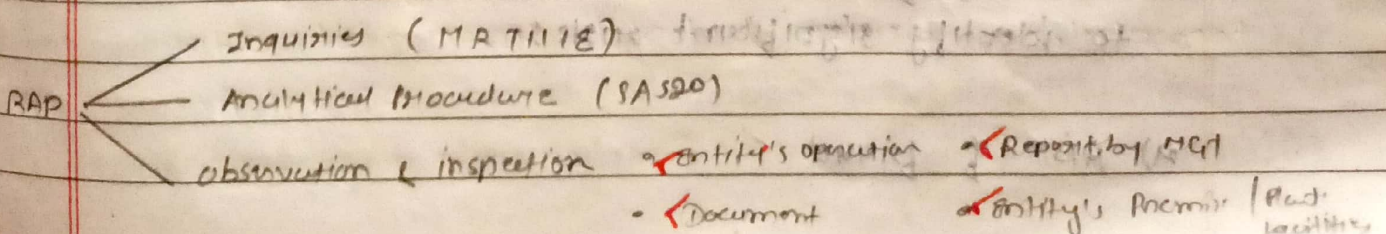 Inquiries (
RAP
Analytical Procedure (SA 520)
observation & inspection • entity's operation • Report by MGT
• Document • entity's Premise / Plant facilities